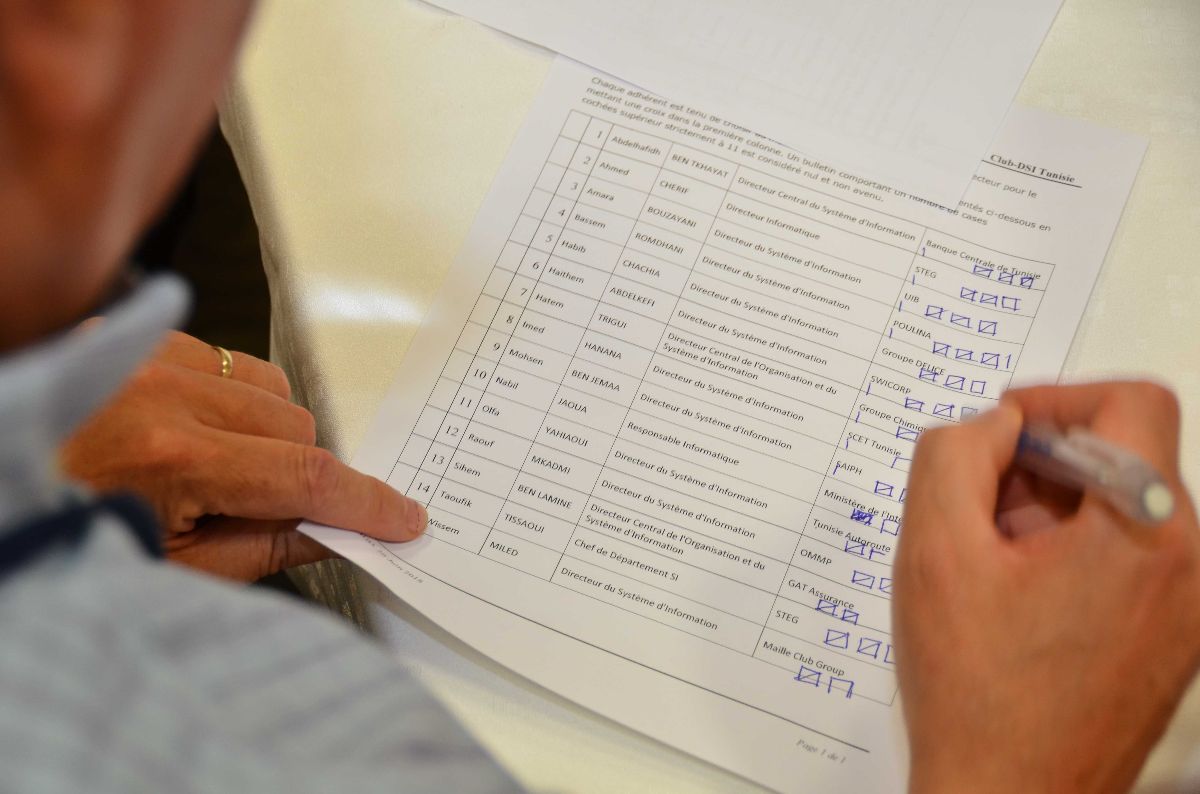 Club-DSI Tunisie
Chaque adhérent est tenu de
ecteur pour le
mettant une croix dans la première colonne. Un bulletin comportant un nombre de cases
entés ci-dessous en
cochées supérieur strictement à 11 est considéré nul et non avenu.
1 Abdelhafidh BEN TKHAYAT Directeur Central du Système d'Information Banque Centrale de Tunisie
2 Ahmed CHERIF Directeur Informatique STEG
3 Amara BOUZAYANI Directeur du Système d'Information UIB
4 Bassem ROMDHANI Directeur du Système d'Information POULINA
5 Habib CHACHIA Directeur du Système d'Information Groupe DELICE
6 Haithem ABDELKEFI Directeur du Système d'Information SWICORP
7 Hatem TRIGUI Directeur Central de l'Organisation et du Système d'Information Groupe Chimiq
8 Imed HANANA Directeur du Système d'Information SCET Tunisie
9 Mohsen BEN JEMAA Directeur du Système d'Information SAIPH
10 Nabil JAOUA Responsable Informatique Ministère de l'Inte
11 Olfa YAHIAOUI Directeur du Système d'Information Tunisie Autoroute
12 Raouf MKADMI Directeur du Système d'Information OMMP
13 Sihem BEN LAMINE Directeur Central de l'Organisation et du Système d'Information GAT Assurance
14 Taoufik TISSAOUI Chef de Département SI STEG
Wissem MILED Directeur du Système d'Information Maille Club Group
Page 1 de 1